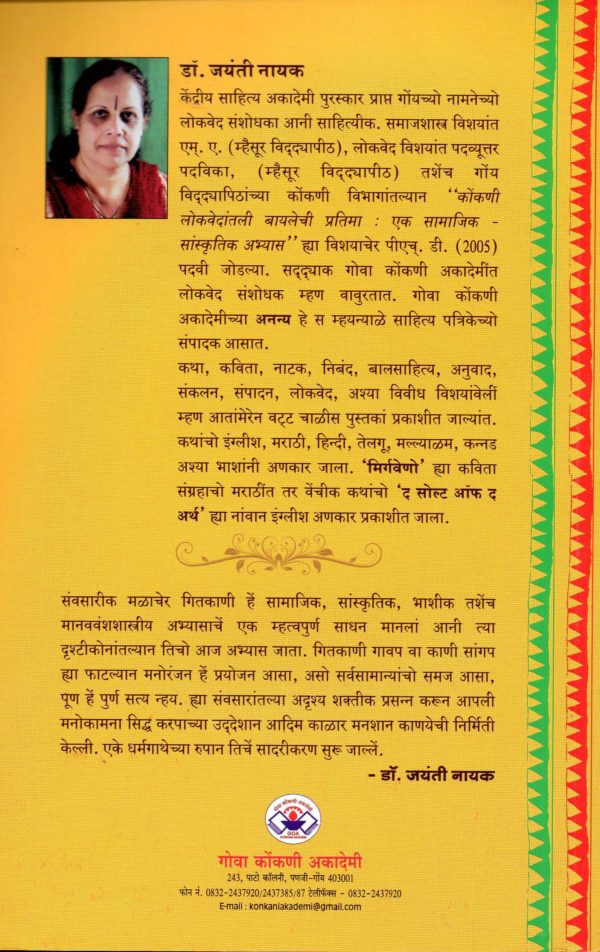 डॉ. जयंती नायक
केंद्रीय साहित्य अकादेमी पुरस्कार प्राप्त गोंयच्यो नामनेच्यो
लोकवेद संशोधका आनी साहित्यीक. समाजशास्त्र विशयांत
एम्. ए. (म्हैसूर विद्‌द्यापीठ), लोकवेद विशयांत पदव्यूत्तर
पदविका, (म्हैसूर विद्‌द्यापीठ) तशेंच गोंय
विद्‌द्यापिठांच्या कोंकणी विभागांतल्यान "कोंकणी
लोकवेदांतली बायलेची प्रतिमा : एक सामाजिक -
सांस्कृतिक अभ्यास" ह्या विशयाचेर पीएच्. डी. (2005)
पदवी जोडल्या. सद्‌द्याक गोवा कोंकणी अकादेमींत
लोकवेद संशोधक म्हण वावुरतात. गोवा कोंकणी
अकादेमीच्या अनन्य हे स म्हयन्याळे साहित्य पत्रिकेच्यो
संपादक आसात.
कथा, कविता, नाटक, निबंद, बालसाहित्य, अनुवाद,
संकलन, संपादन, लोकवेद, अश्या विवीध विशयांवेलीं
म्हण आतांमेरेन वट्‌ट चाळीस पुस्तकां प्रकाशीत जाल्यांत.
कथांचो इंग्लीश, मराठी, हिन्दी, तेलगू, मल्ल्याळम, कन्नड
अश्या भाशांनी अणकार जाला. 'मिर्गवेणो' ह्या कविता
संग्रहाचो मराठींत तर वेंचीक कथांचो 'द सोल्ट ऑफ द
अर्थ' ह्या नांवान इंग्लीश अणकार प्रकाशीत जाला.
संवसारीक मळाचेर गितकाणी हें सामाजिक, सांस्कृतिक, भाशीक तशेंच
मानववंशशास्त्रीय अभ्यासाचें एक म्हत्वपुर्ण साधन मानलां आनी त्या
दृश्टीकोनांतल्यान तिचो आज अभ्यास जाता. गितकाणी गावप वा काणी सांगप
ह्या फाटल्यान मनोरंजन हें प्रयोजन आसा, असो सर्वसामान्यांचो समज आसा,
पूण हें पुर्ण सत्य न्हय. ह्या संवसारांतल्या अदृश्य शक्तीक प्रसन्न करून आपली
मनोकामना सिद्ध करपाच्या उद्‌देशान आदिम काळार मनशान काणयेची निर्मिती
केल्ली. एके धर्मगाथेच्या रुपान तिचें सादरीकरण सुरू जाल्लें.
- डॉ. जयंती नायक
गोवा कोंकणी अकादेमी
GOA
गोवा कोंकणी अकादेमी
243, पाटो कॉलनी, पणजी-गोंय 403001
फोन नं. 0832-2437920/2437385/87 टेलीफॅक्स - 0832-2437920
E-mail : konkaniakademi@gmail.com